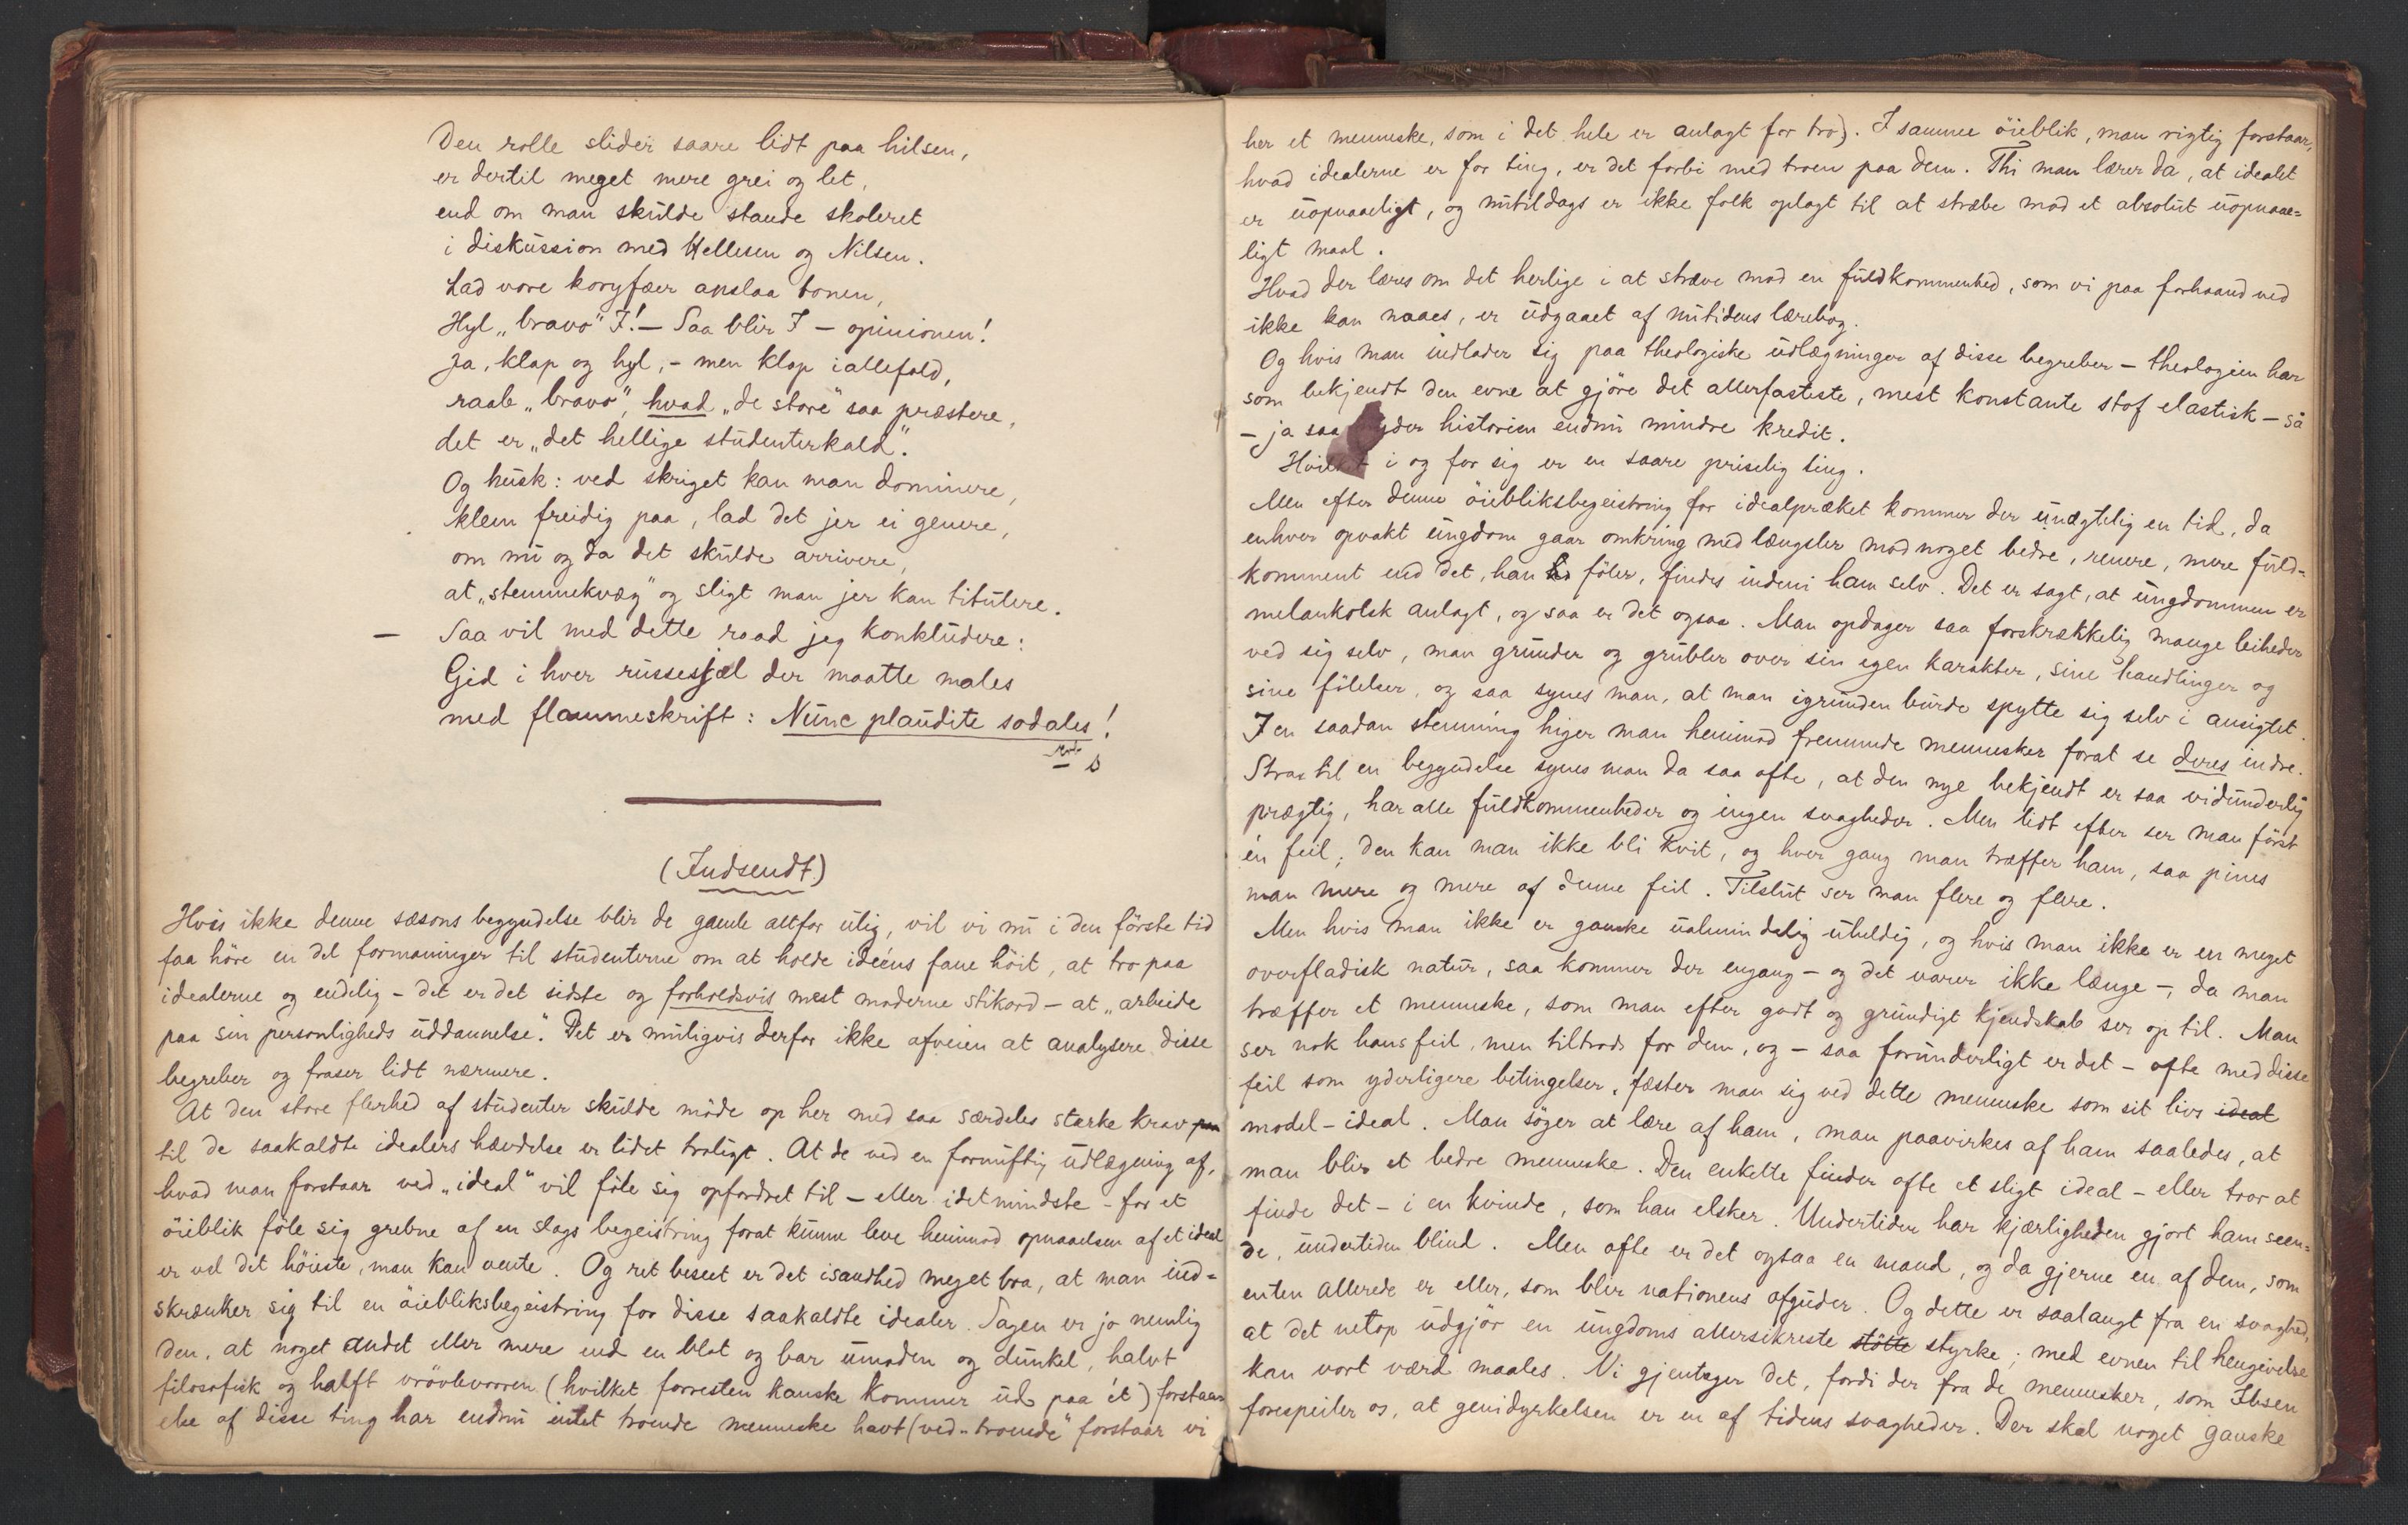 Den rolle slider saare lidt paa hilsen,
er dertil meget mere grei og let,
end om man skulde stande skoleret
i diskussion med Hellesen og Nilsen.
Lad vore koryfæer anslaa tonen,
Hyl „bravo“ I! – Saa blir I – opinionen!
Ja, klap og hyl, – men klap iallefald,
raab „bravo“, hvad „de store“ saa præstere,
det er „det hellige studenterkald“.
Og husk: ved skriget kan man dominere,
klem freidig paa, lad det jer ei genere,
om nu og da det skulde arrivere,
at „stemmekvæg“ og sligt man jer kan titulere.
– Saa vil med dette raad jeg konkludere:
Gid i hver russesjæl der maatte males
med flammeskrift: Nunc plaudite sodales!
(Indsendt.)
Hvis ikke denne sæsons begyndelse blir de gamle altfor ulig, vil vi nu i den förste tid
faa höre en del formaninger til studenterne om at holde ideens fane höit, at tro paa
idealerne og endelig – det er det sidste og forholdsvis mest moderne stikord – at „arbeide
paa sin personligheds uddannelse“. Det er muligvis derfor ikke afveien at analysere disse
begreber og fraser lidt nærmere.
At den store flerhed af studenter skulde möde op her med saa særdeles stærke krav paa
til de saakaldte idealers hævdelse er lidet troligt. At de ved en fornuftig udlægning af,
hvad man forstaar ved „ideal“ vil föle sig opfordret til – eller idetmindste – for et
öieblik föle sig grebne af en slags begeistring forat kunne leve henimod opnaaelsen af et ideal
er vel det höieste, man kan vente. Og ret beseet er det isandhed meget bra, at man ind-
skrænker sig til en öiebliksbegeistring for disse saakaldte idealer. Sagen er jo nemlig
den, at noget andet eller mere end en blot og bar umoden og dunkel, halvt
filosofisk og halft vrövlevorren (hvilket forresten kanske kommer ud paa ét) forstaa-
else af disse ting har endnu intet troende menneske havt (ved „troende“ forstaar vi
her et menneske, som i det hele er anlagt for tro). I samme öieblik, man rigtig forstaar,
hvad idealerne er for ting, er det forbi med troen paa dem. Thi man lærer da, at idealet
er uopnaaeligt, og nutildags er ikke folk oplagt til at stræbe mod et absolut uopnaae-
ligt maal.
Hvad der læres om det herlige i at stræve mod en fuldkommenhed, som vi paa forhaand ved
ikke kan naaes, er udgaaet af nutidens lærebog.
Og hvis man indlader sig paa theologiske udlægninger af disse begreber – theologien har
som bekjendt den evne at gjöre det allerfasteste, mest konstante stof elastisk – så
– ja saa historien endnu mindre kredit.
Hvilket i og for sig er en saare priselig ting.
Men efter denne öiebliksbegeistring for idealpræket kommer der unægtelig en tid, da
enhver opvakt ungdom gaar omkring med længsler mod noget bedre, renere, mere fuld-
komment end det, han föler, findes indeni ham selv. Det er sagt, at ungdommen er
melankolsk anlagt, og saa er det ogsaa. Man opdager saa forskrækkelig mange leiheder
ved sig selv, man grunder og grubler over sin egen karakter, sine handlinger og
sine fölelser, og saa synes man, at man igrunden burde spytte sig selv i ansigtet.
I en saadan stemning higer man henimod fremmede mennesker forat se deres indre.
Strax til en begyndelse synes man da saa ofte, at den nye bekjendt er saa vidunderlig
prægtig, har alle fuldkommenheder og ingen svagheder. Men lidt efter ser man först
én feil; den kan man ikke bli kvit, og hver gang man træffer ham, saa pines
man mere og mere af denne feil. Tilslut ser man flere og flere.
Men hvis man ikke er ganske ualmindelig uheldig, og hvis man ikke er en meget
overfladisk natur, saa kommer der engang – og det varer ikke længe –, da man
træffer et menneske, som man efter godt og grundigt kjendskab ser op til. Man
ser nok hans feil, men tiltrods for dem, og – saa forunderligt er det – ofte med disse
feil som yderligere betingelser, fæster man sig ved dette menneske som sit livs ideal
model – ideal. Man söger at lære af ham, man paavirkes af ham saaledes, at
man blir et bedre menneske. Den enkelte finder ofte et sligt ideal – eller tror at
finde det – i en kvinde, som han elsker. Undertiden har kjærligheden gjort ham seen-
de, undertiden blind. Men ofte er det ogsaa en mand, og da gjerne en af dem, som
enten allerede er eller, som blir nationens afguder. Og dette er saalangt fra en svaghed,
at det netop udgjör en ungdoms allersikreste stötte styrke; med evnen til hengivelse
kan vort værd maales. Vi gjentager det, fordi der fra de mennesker, som Ibsen
forespeiler os, at genidyrkelsen er en af tidens svagheder. Der skal noget ganske